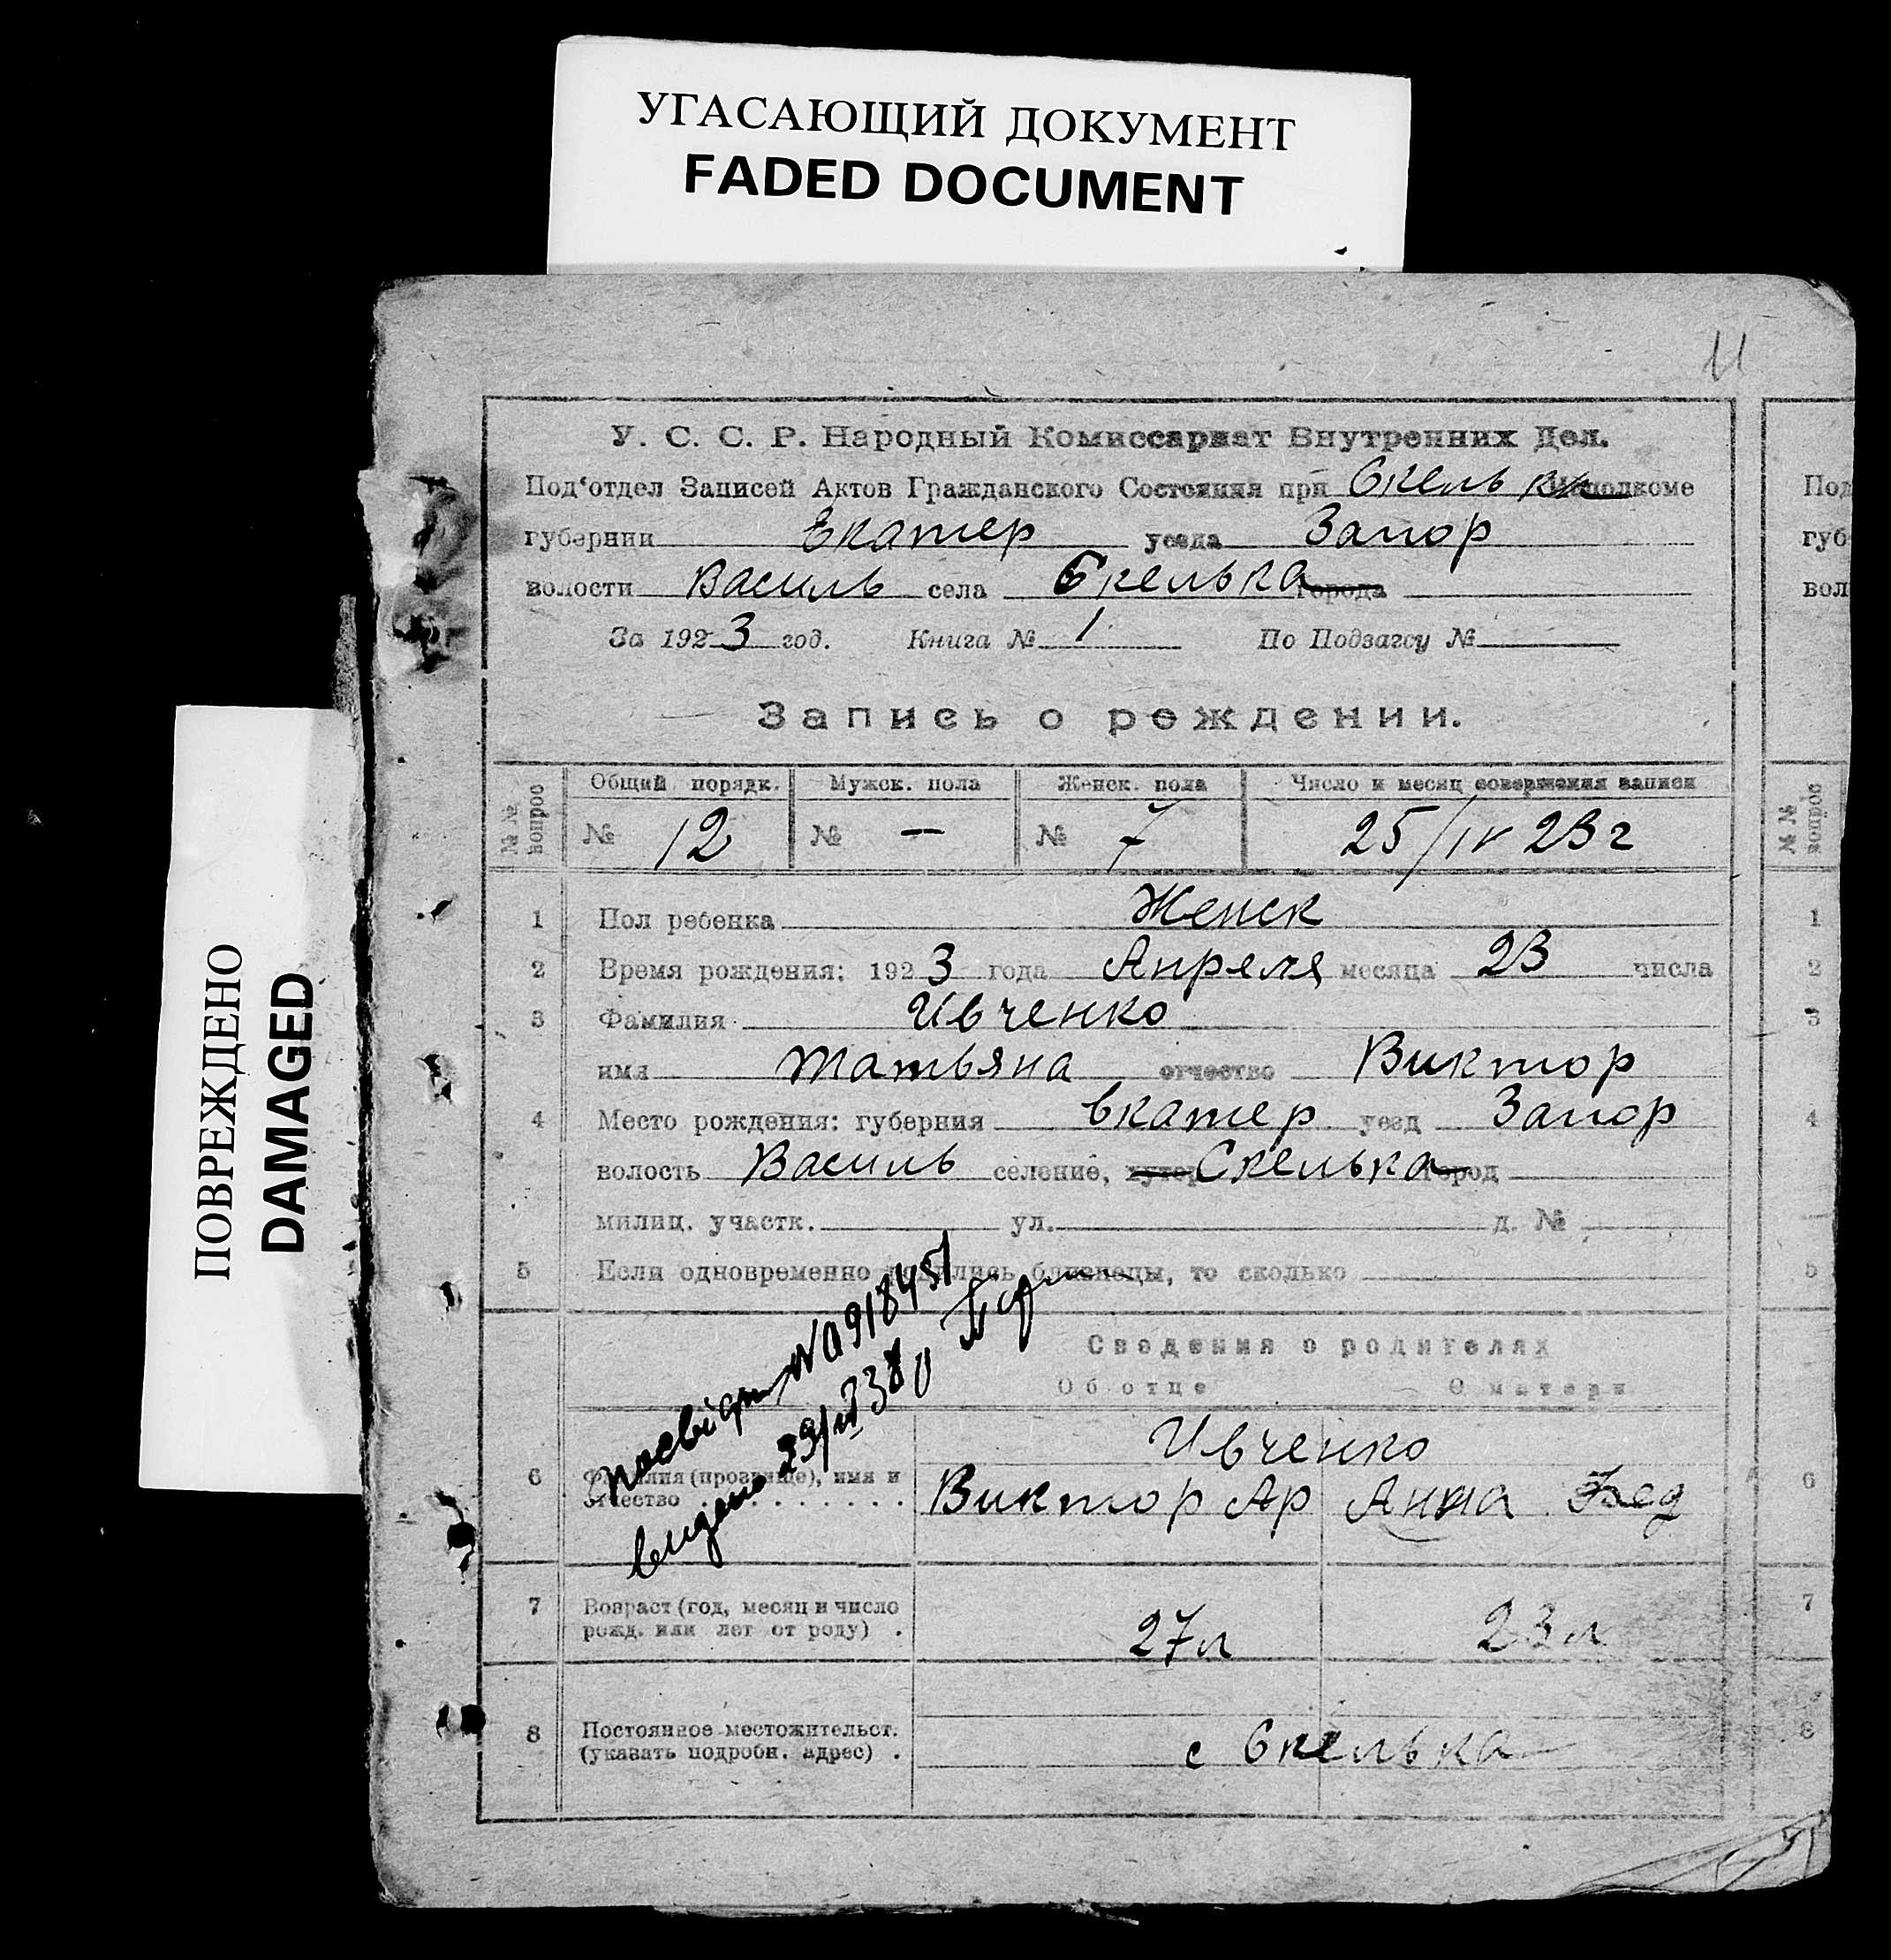 УГАСАЮЩИЙ ДОКУМЕНТ
FADED DOCUMENT
ПОВРЕЖДЕНО
DAMAGED
11
У. С. С. Р. Народный Комиссариат Внутренних Дел.
Под‘отдел Записей Актов Гражданского Состояния при Скельк исполкоме
губернии Екатер уезда Запор
волости Василь села Скелька города
За 1923 год. Книга № 1 По Подзагсу №
Запись о рождении.
№№ вопрос Общий порядк. Мужск. пола Женск. пола Число и месяц совершения записи
№ 12 № — № 7 25/IV 23 г
1 Пол ребенка Женск
2 Время рождения: 1923 года Апреля месяца 23 числа
3 Фамилия Ивченко
имя Татьяна отчество Виктор
4 Место рождения: губерния Екатер уезд Запор
волость Василь селение, хутор Скелька город
милиц. участк. ул. д. №
5 Если одновременно родились близнецы, то сколько
Сведения о родителях
Об отце О матери
посвідч № 0918451
видано 29/
6 Фамилия (прозвище), имя и отчество Ивченко
Виктор Ар Анна Фед
7 Возраст (год, месяц и число
рожд. или лет от роду) . 27 л 23 л
8 Постоянное местожительст.
(указать подробн. адрес) . с Скелька
Под
губ
вол
№№ вопрос
1
2
3
4
5
6
7
8